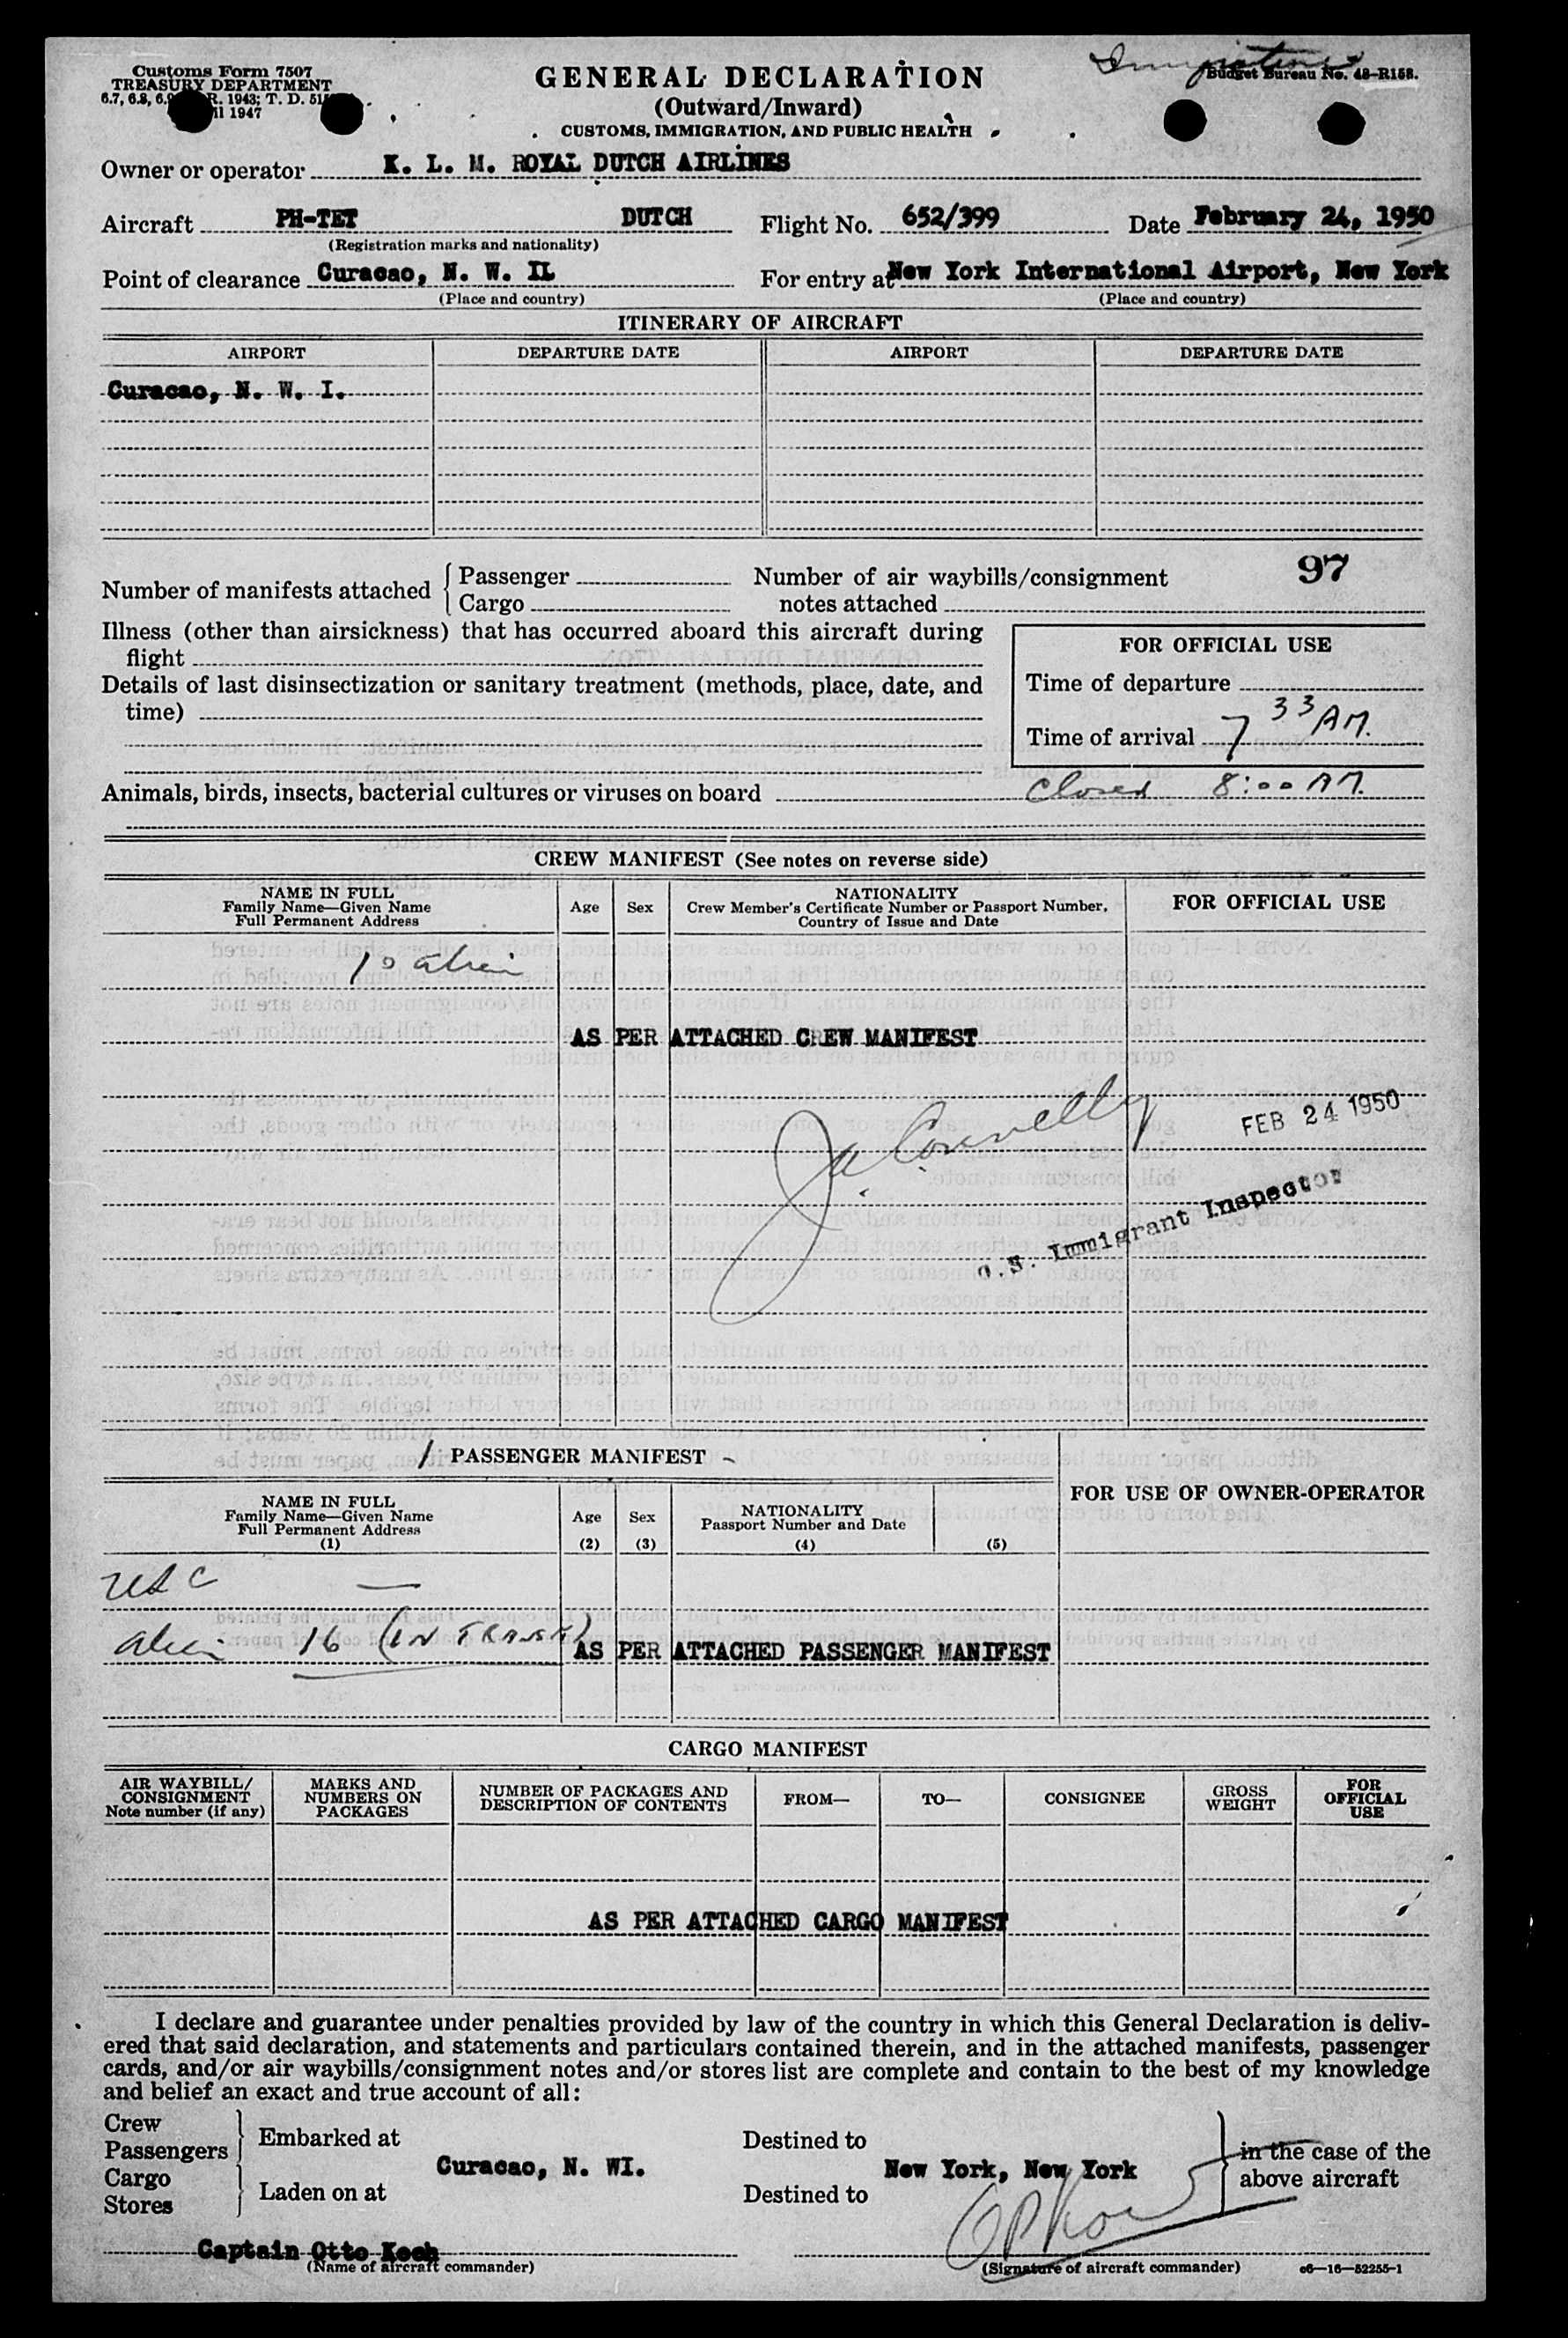 Customs Form 7507
TREASURY DEPARTMENT
6.7, 6.8, R. 1943; T. D.
1947
GENERAL DECLARATION
(Outward/Inward)
CUSTOMS, IMMIGRATION, AND PUBLIC HEALTH
Budget Bureau No. 48-R158.
Owner or operator K. L. M. ROYAL DUTCH AIRLINES
Aircraft PH-TET DUTCH Flight No. 652/399 Date February 24, 1950
(Registration marks and nationality)
Point of clearance Curacao, N. W. II For entry at New York International Airport, New York
(Place and country) (Place and country)
ITINERARY OF AIRCRAFT
AIRPORT DEPARTURE DATE AIRPORT DEPARTURE DATE
Curacao, N. W. I.
97
Number of manifests attached { Passenger Number of air waybills/consignment
Cargo notes attached
Illness (other than airsickness) that has occurred aboard this aircraft during
flight
Details of last disinsectization or sanitary treatment (methods, place, date, and
time)
FOR OFFICIAL USE
Time of departure
Time of arrival 7 33 AM.
Animals, birds, insects, bacterial cultures or viruses on board Closed 8:00 AM.
CREW MANIFEST (See notes on reverse side)
NAME IN FULL
Family Name—Given Name
Full Permanent Address
Age
Sex
NATIONALITY
Crew Member's Certificate Number or Passport Number,
Country of Issue and Date
FOR OFFICIAL USE
10 alien
AS PER ATTACHED CREW MANIFEST
Ja Connelly
FEB 24 1950
U.S. Immigrant Inspector
/ PASSENGER MANIFEST -
FOR USE OF OWNER-OPERATOR
NAME IN FULL
Family Name—Given Name
Full Permanent Address
(1)
Age
(2)
Sex
(3)
NATIONALITY
Passport Number and Date
(4)
(5)
USC —
alien 16 (IN TRANSIT)
AS PER ATTACHED PASSENGER MANIFEST
CARGO MANIFEST
AIR WAYBILL/
CONSIGNMENT
Note number (if any)
MARKS AND
NUMBERS ON
PACKAGES
NUMBER OF PACKAGES AND
DESCRIPTION OF CONTENTS
FROM—
TO—
CONSIGNEE
GROSS
WEIGHT
FOR
OFFICIAL
USE
AS PER ATTACHED CARGO MANIFEST
I declare and guarantee under penalties provided by law of the country in which this General Declaration is deliv-
ered that said declaration, and statements and particulars contained therein, and in the attached manifests, passenger
cards, and/or air waybills/consignment notes and/or stores list are complete and contain to the best of my knowledge
and belief an exact and true account of all:
Crew
Passengers } Embarked at Destined to
Curacao, N. WI. New York, New York
Cargo
Stores } Laden on at Destined to
} in the case of the
above aircraft
Captain Otto Koch
(Name of aircraft commander)
(Signature of aircraft commander)
c6—16—52255-1